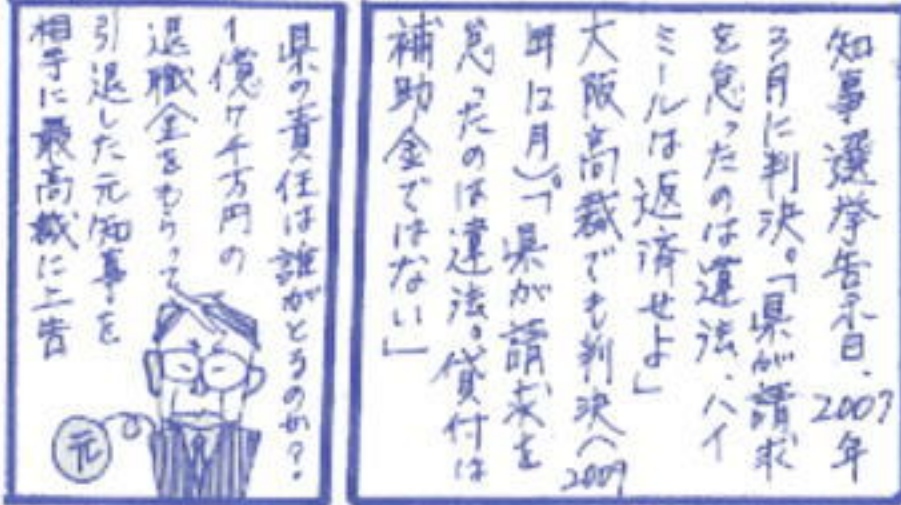 知事選挙告示日、2007年
3月に判決。「県が請求
を怠ったのは違法、ハイ
ミールは返済せよ」
大阪高裁でも判決へ2009
年12月)。「県が請求を
怠ったのは違法。貸付は
補助金ではない」
県の責任は誰がとるのか?
1億7千万円の
退職金をもらって
引退した元知事を
相手に最高裁に上告
元